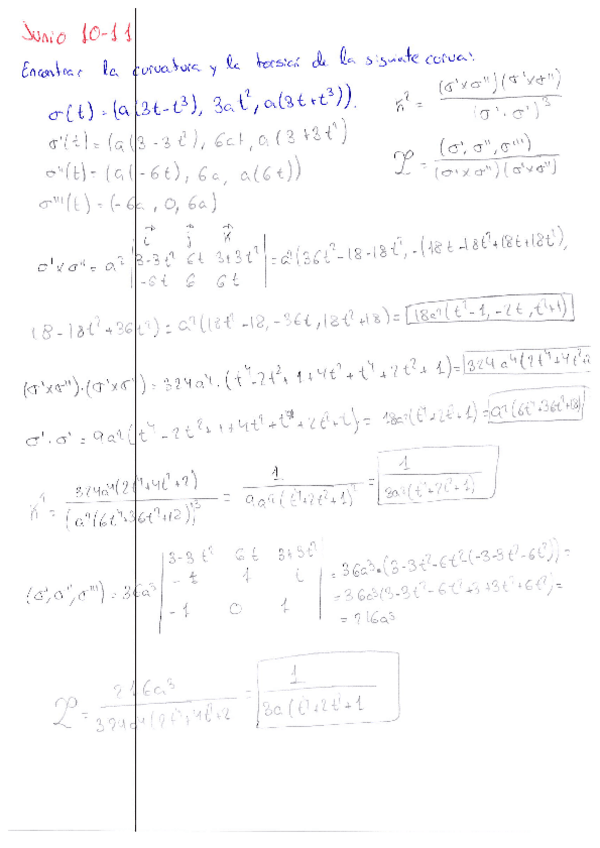 Junio 10-11
Encontrar la curvatura y la torsión de la siguiente curva:
σ(t) = (a(3t-t³), 3at², a(3t+t³)).
κ² = (σ'×σ'')(σ'×σ'') / (σ'·σ')³
σ'(t) = (a(3-3t²), 6at, a(3+3t²)
σ''(t) = (a(-6t), 6a, a(6t))
τ = (σ', σ'', σ''') / (σ'×σ'')(σ'×σ'')
σ'''(t) = (-6a, 0, 6a)
i j k
σ'×σ'' = a² | 3-3t² 6t 3+3t² | = a²(36t²-18-18t², -(18t-18t³+18t+18t³),
-6t 6 6t
18-18t²+36t²) = a²(18t²-18, -36t, 18t²+18) = 18a²(t²-1, -2t, t²+1)
(σ'×σ'')·(σ'×σ'') = 324a⁴·(t⁴-2t²+1+4t²+t⁴+2t²+1) = 324a⁴(2t⁴+4t²
σ'·σ' = 9a²(t⁴-2t²+1+4t²+t⁴+2t²+1) = 18a²(t⁴+2t²+1) =
κ² = 324a⁴(2t⁴+4t²+2) / = 1 / 9a²(t⁴+2t²+1)² = 1 / 3a²(t⁴+2t²+1)
3-3t² 6t 3+3t²
(σ', σ'', σ''') = 36a³ | -t 1 t | = 36a³·(3-3t²-6t²(-3-3t²-6t²)) =
= 36a³(3-3t²-6t²+3+3t²+6t²) =
-1 0 1
= 216a³
τ = 216a³ / 324a⁴(2t⁴+4t²+2 = 1 / 3a(t⁴+2t²+1